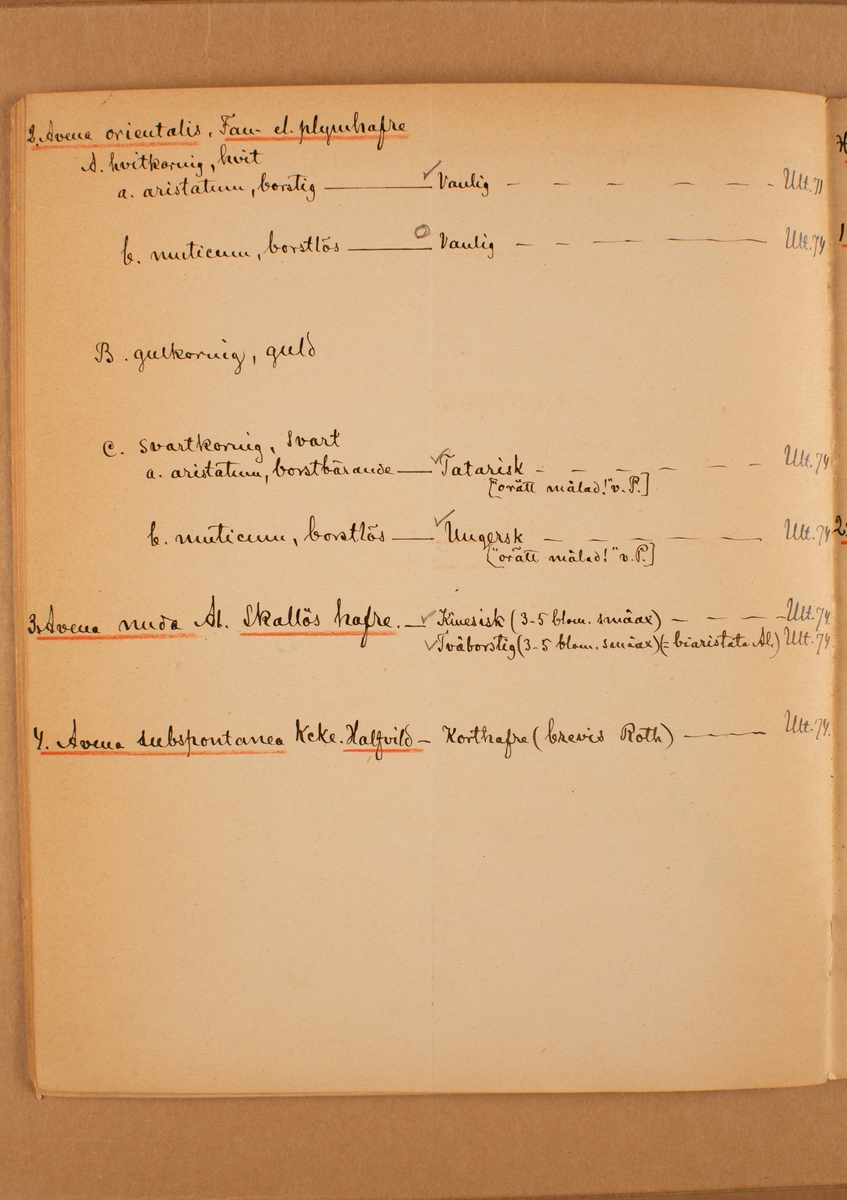 2. Avena orientalis. Fan- el. plymhafre
A. hvitkornig, hvit
a. aristatum, borstig — Vanlig — — — — — — Utt. 71
b. muticum, borstlös — Vanlig — — — — — Utt. 74
B. gulkornig, guld
C. Svartkornig, Svart
a. aristatum, borstbärande — Tatarisk — — — — — — Utt. 74
["orätt målad!" v. P.]
b. muticum, borstlös — Ungersk — — — — — Utt. 74
["orätt målad!" v. P.]
3. Avena nuda Al. Skallös hafre. — Kinesisk (3-5 blom. småax) — — — — Utt. 74
Tvåborstig (3-5 blom. småax) (= biaristata Al.) Utt. 74
4. Avena subspontanea Kcke. Halfvild — Korthafre (brevis Roth) — — Utt. 74.